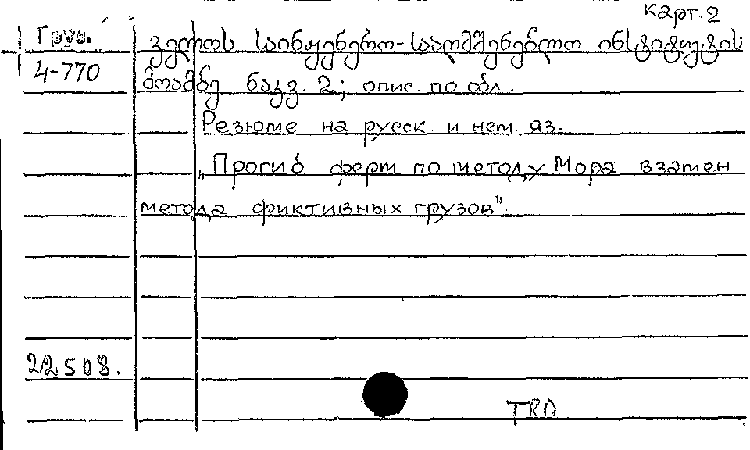 Карт. 2
Груз. ველოს საინჟენერო-სააღმშენებლო ინსტიტუტის
4-770 შრომანი ნაკვ. 2; опис. по обл.
Резюме на русск. и нем. яз.
„Прогиб ферм по методу Мора взамен
метода фиктивных грузов".
22508.
TRO